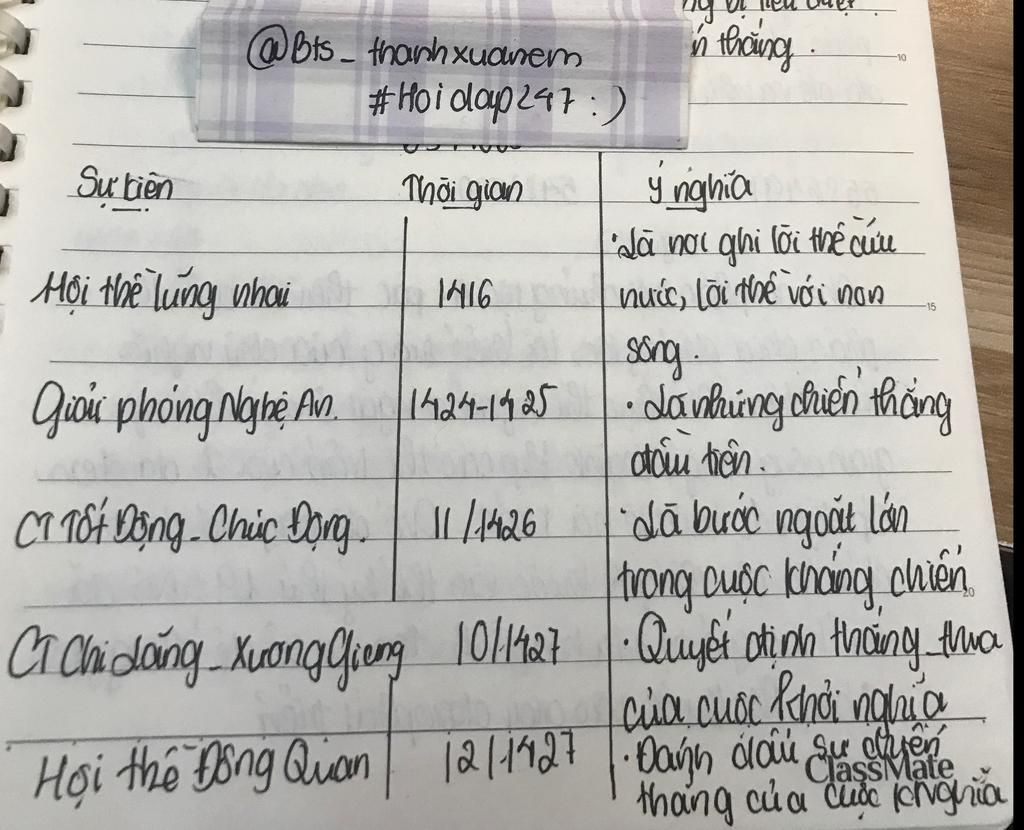 @Bts_thanhxuanem
#Hoidap247 :)
thắng.
10
Sự kiện Thời gian ý nghĩa
Hội thề lũng nhai 1416 ·Là nơi ghi lời thề cứu
nước, lời thề với non
15
sông.
Giải phóng Nghệ An. 1424-1425 ·Là những chiến thắng
đầu tiên.
CT Tốt Động - Chúc Động. 11/1426 ·Là bước ngoặt lớn
trong cuộc kháng chiến
20
CT Chi Lăng - Xương Giang 10/1427 ·Quyết định thắng thua
của cuộc khởi nghĩa
Hội thề Đông Quan 12/1427 ·Đánh dấu sự
ClassMate
thắng của cuộc k/nghĩa